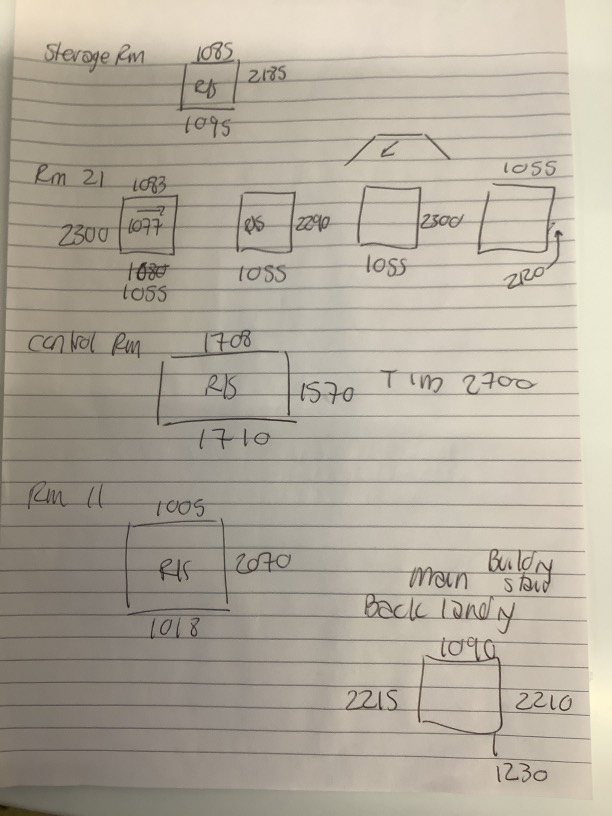 Storage Rm 1085
R/S 2185
1095
Rm 21 1083 1055
2300 1077 R/S 2290 2300
1080
1055 1055 1055 2120
Control Rm 1708
R/S 1570 2700
1710
Rm 11 1005
R/S 2070
1018
Main
Back
1090
2215 2210
1230